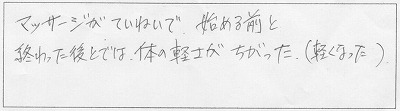 マッサージがていねいで、始める前と
終わった後とでは、体の軽さがちがった。(軽くなった)